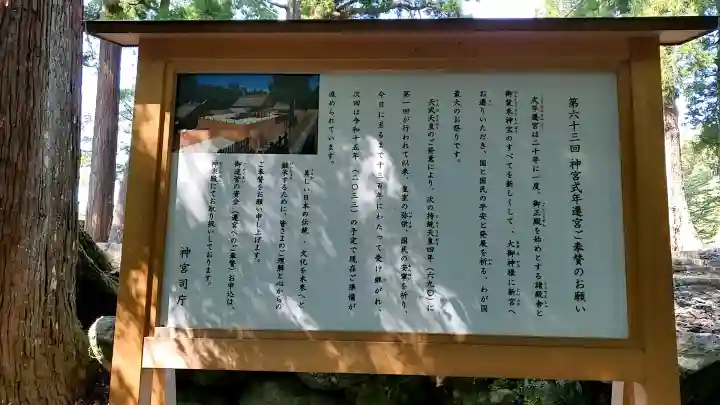 第六十三回 神宮式年遷宮ご奉賛のお願い
式年遷宮は二十年に一度、御正殿を始めとする諸殿舎と
御装束神宝のすべてを新しくして、大御神様に新宮へ
お遷りいただき、国と国民の平安と発展を祈る、わが国
最大のお祭りです。
天武天皇のご発意により、次の持統天皇四年(六九〇)に
第一回が行われて以来、皇室の弥栄、国民の安寧を祈り、
今日に至るまで千三百年にわたって受け継がれ、
次回は令和十五年(二〇三三)の予定で現在ご準備が
進められています。
美しい日本の伝統・文化を未来へと
継承するために、皆さまのご理解と心からの
ご奉賛をお願い申し上げます。
御造営の資金(遷宮へのご奉賛)お申込は、
神楽殿にてお取り扱いしております。
神宮司庁